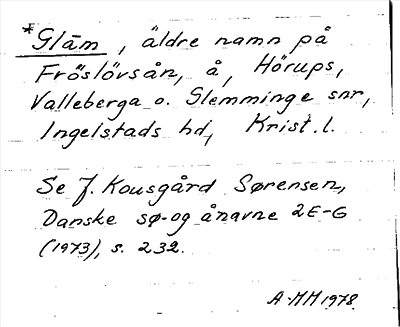 *Glām, äldre namn på
Fröslövsån, å, Hörups,
Valleberga o. Slemminge snr,
Ingelstads hd, Krist. l.
Se J. Kousgård Sørensen,
Danske sø- og ånavne 2E-G
(1973), s. 232.
A-MH 1978